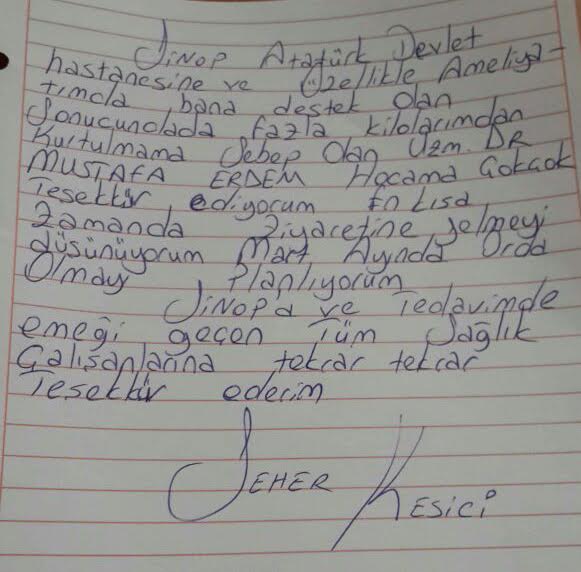 Sinop Atatürk Devlet
hastanesine ve Özellikle Ameliya-
tımda bana destek olan
Sonucundada fazla kilolarımdan
Kurtulmama Sebep Olan Uzm. DR
MUSTAFA ERDEM Hocama Çokçok
Teşekkür ediyorum En kısa
Zamanda Ziyaretine gelmeyi
düşünüyorum Mart Ayında Orda
Olmay Planlıyorum
Sinopa ve Tedavimde
emeği geçen Tüm Sağlık
Çalışanlarına tekrar tekrar
Teşekkür ederim
SEHER KESİCİ